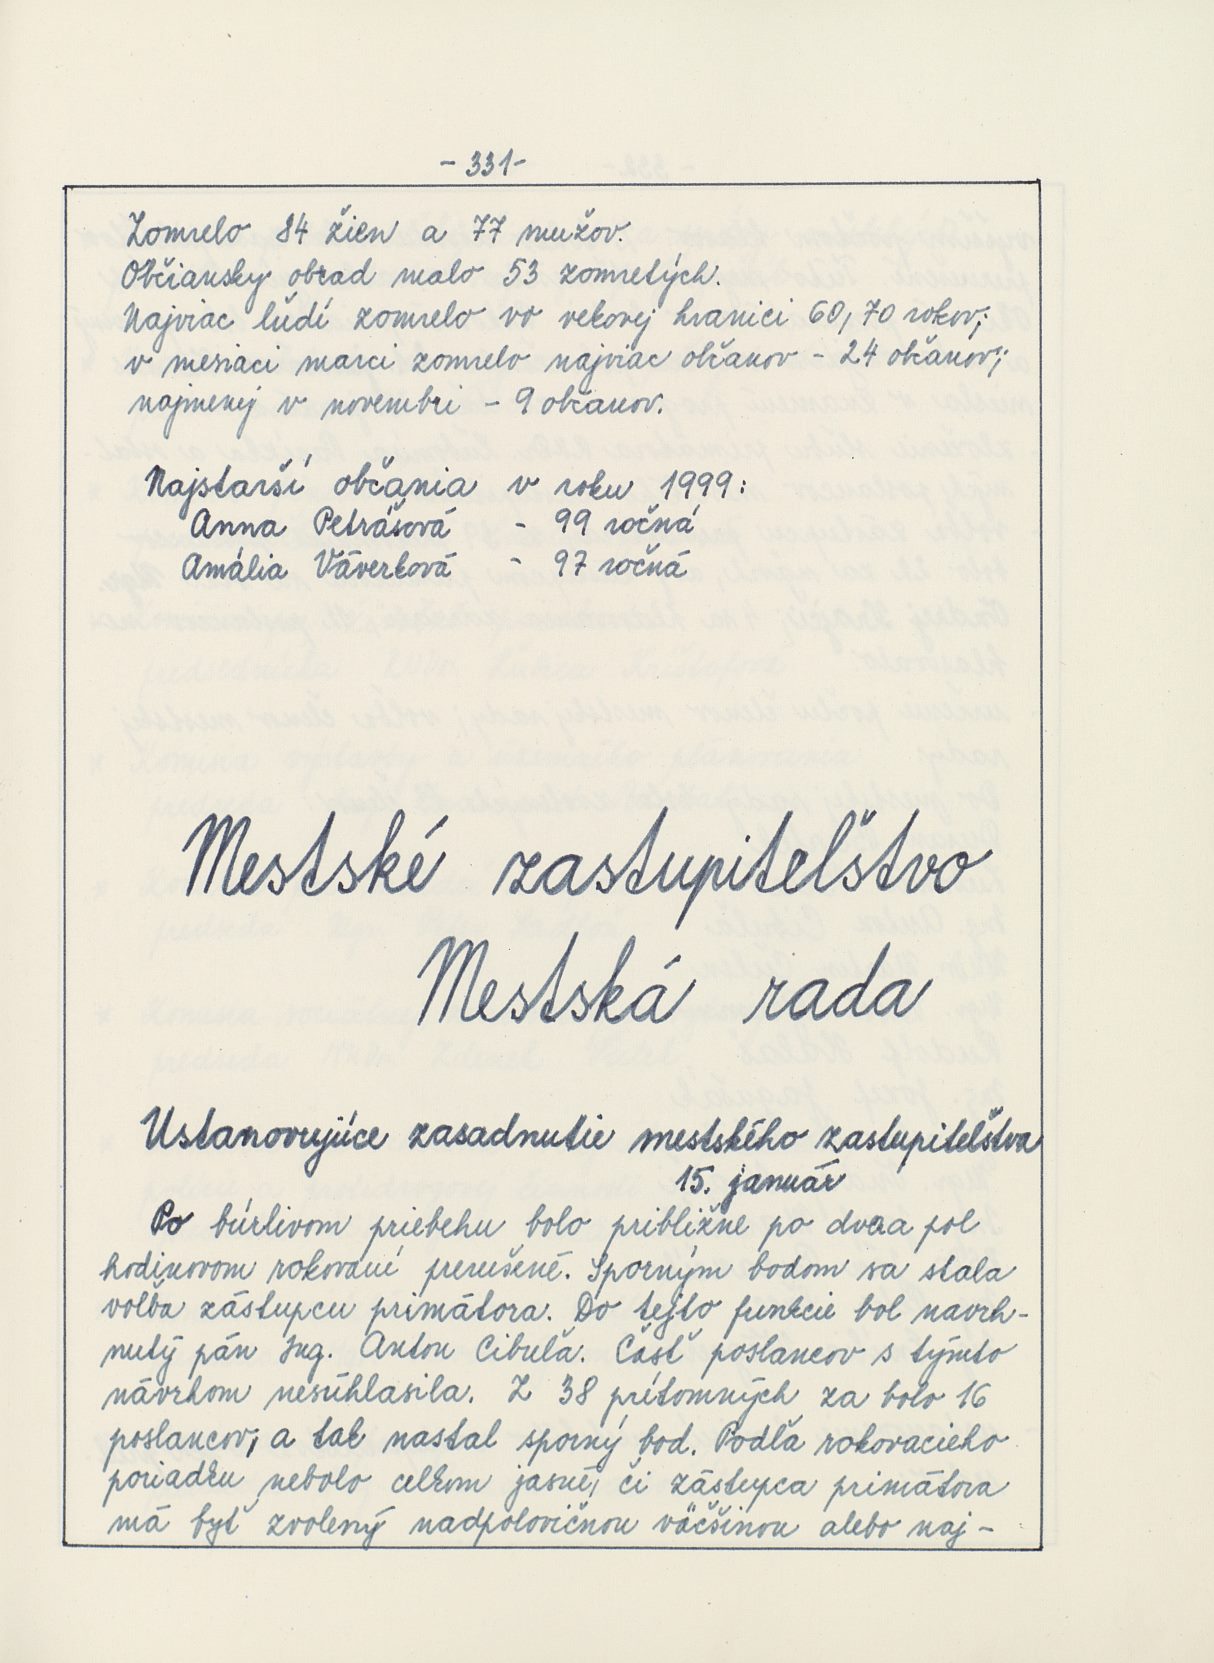 - 331 -
Zomrelo 84 žien a 77 mužov.
Občiansky obrad malo 53 zomretých.
Najviac ľudí zomrelo vo vekovej hranici 60, 70 rokov;
v mesiaci marci zomrelo najviac občanov - 24 občanov;
najmenej v novembri - 9 občanov.
Najstarší občania v roku 1999:
Anna Petrášová - 99 ročná
Amália Váverková - 97 ročná
Mestské zastupiteľstvo
Mestská rada
Ustanovujúce zasadnutie mestského zastupiteľstva
15. január
Po búrlivom priebehu bolo približne po dvaa pol
hodinovom rokovaní prerušené. Sporným bodom sa stala
voľba zástupcu primátora. Do tejto funkcie bol navrh-
nutý pán Ing. Anton Cibuľa. Časť poslancov s týmto
návrhom nesúhlasila. Z 38 prítomných za bolo 16
poslancov, a tak nastal sporný bod. Podľa rokovacieho
poriadku nebolo celkom jasné, či zástupca primátora
má byť zvolený nadpolovičnou väčšinou alebo naj-